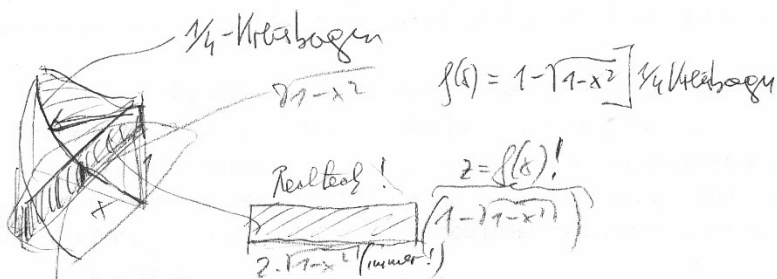 1/4-Kreisbogen
√1-x²
f(x) = 1-√1-x² ] 1/4 Kreisbogen
Rechteck !
z = f(x)!
(1-√1-x²)
x
2·√1-x² (immer!)